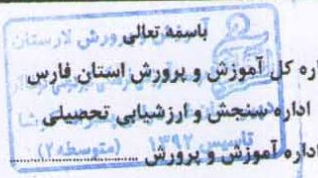 باسمه تعالی
اره کل آموزش و پرورش استان فارس
اداره سنجش و ارزشیابی تحصیلی
داره آموزش و پرورش ....................
ورش لارستان
تاسیس ۱۳۹۲ (متوسطه ۲)